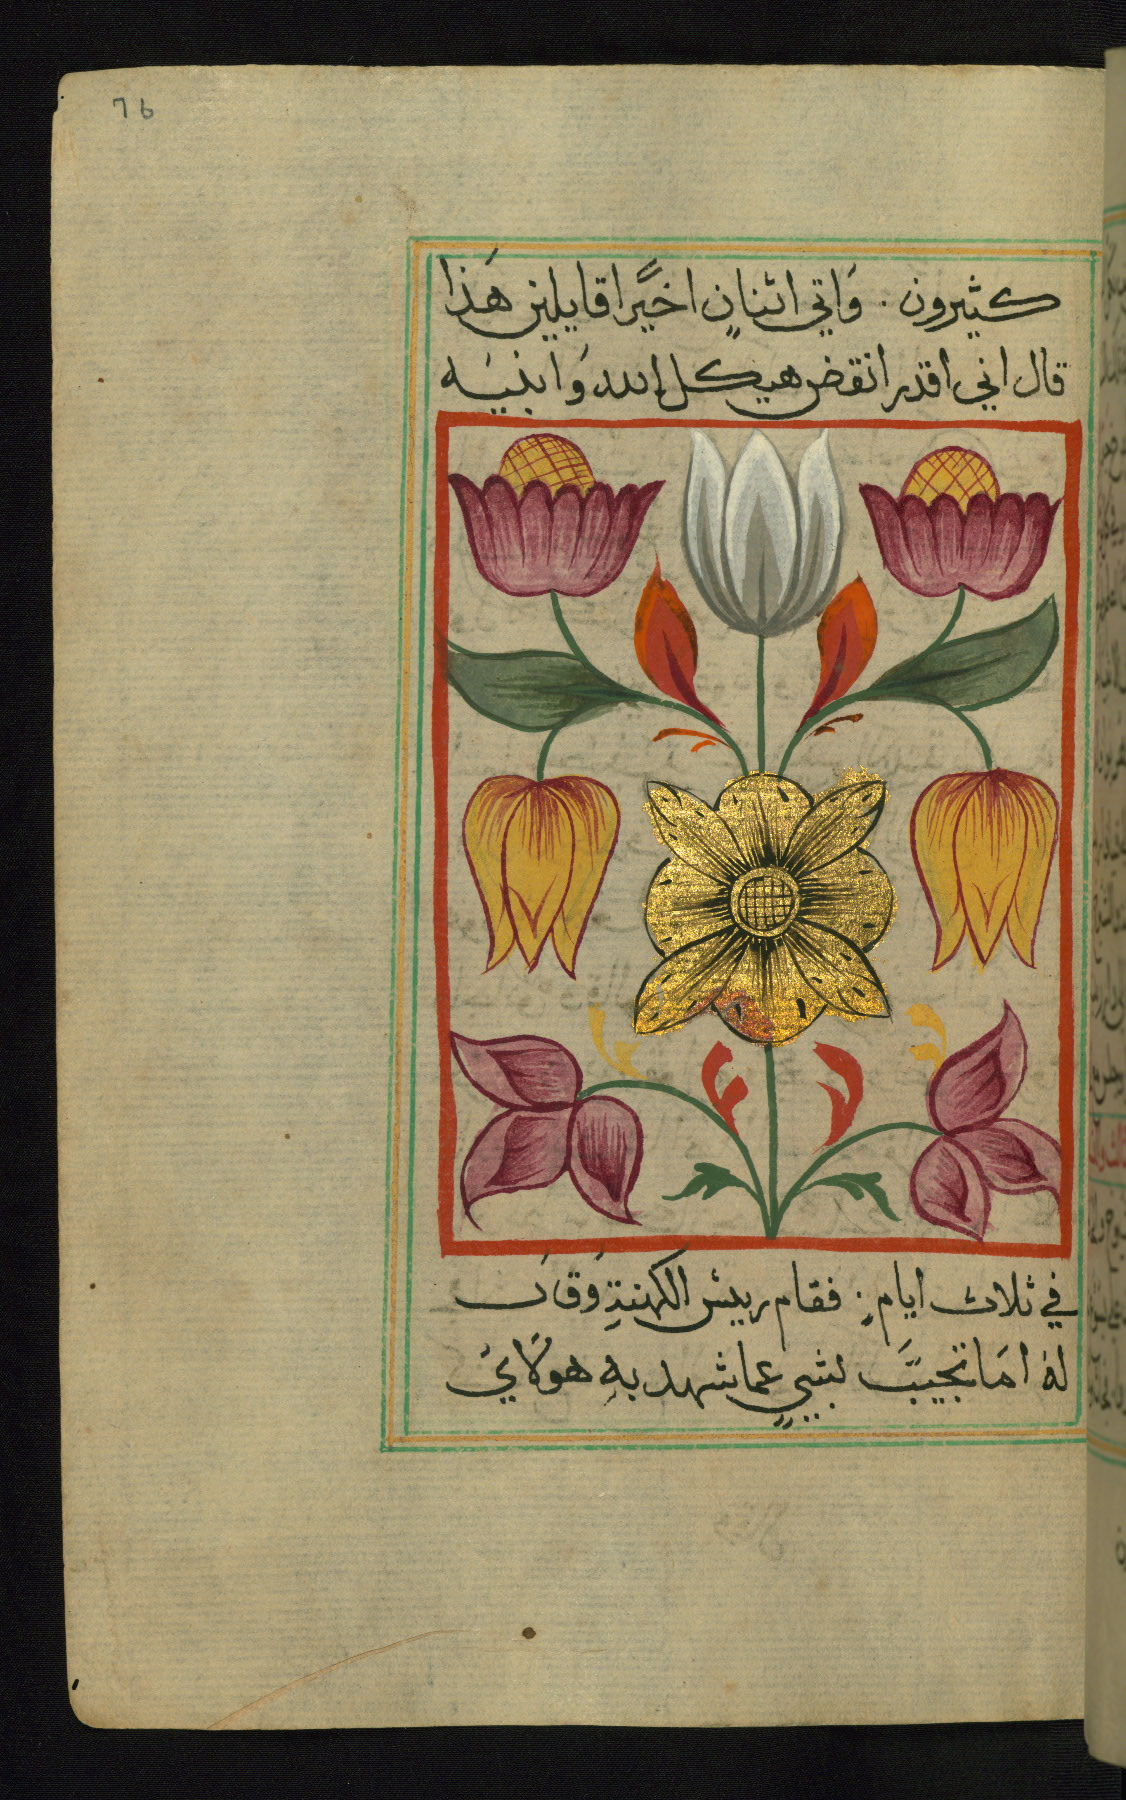 76
كثيرون . وَاتي اثنانِ اخيًرا قايلين هَذا
قال اني اقدر انقض هيكل الله وَابنيَه
في ثلاث ايامٍ . فقام رييس الكهنةِ وَقَال
لهُ امَا تجيبَ بشيٍ عما شهد بهِ هولَايَ